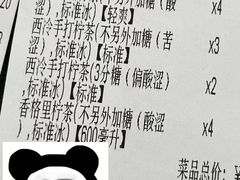 ，标准冰)【轻爽】
西冷手打柠茶(不另外加糖(苦 x3
涩),标准冰)【标准】
西冷手打柠茶(3分糖(偏酸涩) x2
,标准冰)【标准】
香格里柠茶(不另外加糖(酸涩 x4
),标准冰)【600毫升】
菜品总价: